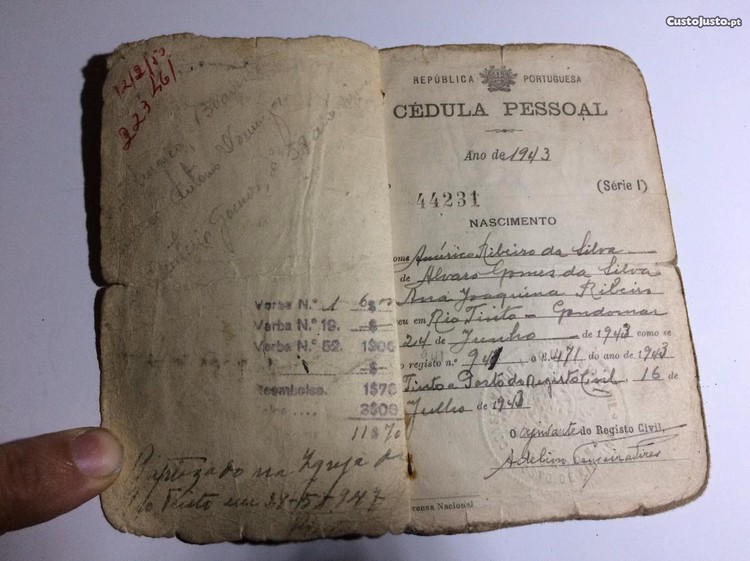 CustoJusto.pt
12/2/50
223461
Antonio
Verba N.º 1 6$00
Verba N.º 19. -$-
Verba N.º 52. 1$00
-$-
Reembolso. 1$70
3$00
11$70
Baptizado na Igreja de
Rio Tinto em 28-5-947
REPÚBLICA PORTUGUESA
CÉDULA PESSOAL
Ano de 1943
44231 (Série I)
NASCIMENTO
ome Américo Ribeiro da Silva
de Alvaro Gomes da Silva
Ana Joaquina Ribeiro
eu em Rio Tinto - Gondomar
24 de Junho de 1943 como se
o registo n.º 941 a fl. 471 do ano de 1943
Tinto e Posto do Registo Civil, 16 de
Julho de 1943
O ajudante do Registo Civil,
Adelino
rensa Nacional